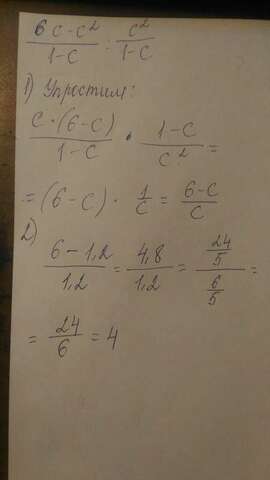 6c-c²/1-c : c²/1-c
1) Упростим:
c·(6-c)/1-c · 1-c/c² =
= (6-c) · 1/c = 6-c/c
2)
6-1,2/1,2 = 4,8/1,2 = 24/5 / 6/5 =
= 24/6 = 4